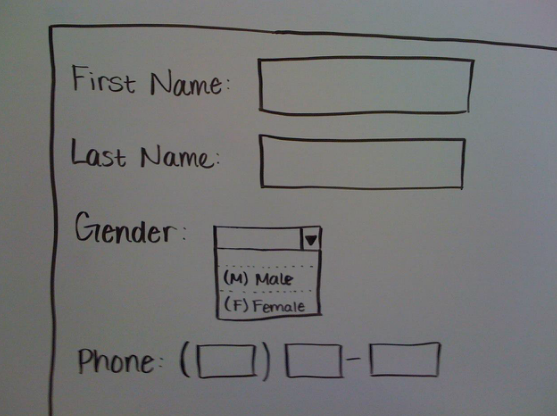 First Name:
Last Name:
Gender:
(M) Male
(F) Female
Phone: ( ) -